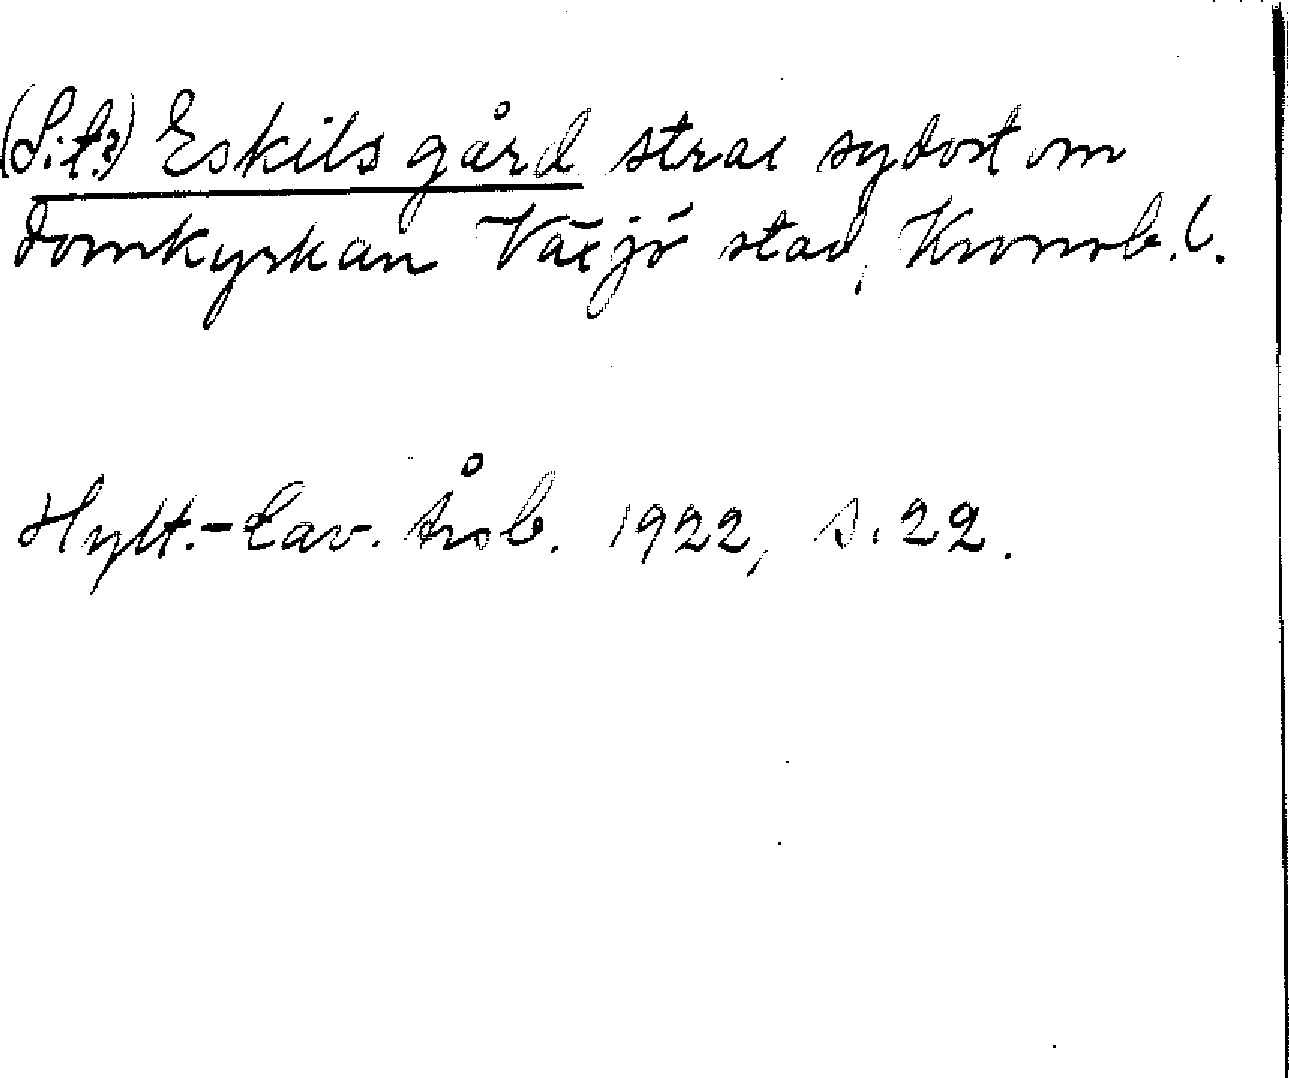 (S:t?) Eskils gård strax sydost om
domkyrkan Växjö stad, Kronob. l.
Hylt.-Cav. årsb. 1922, s. 22.